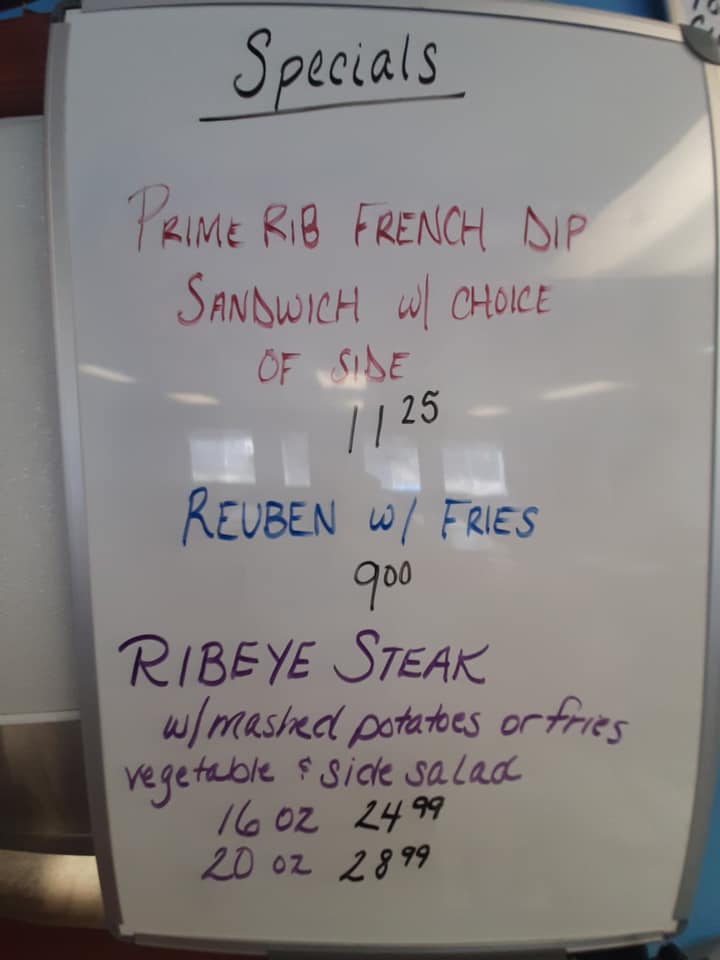 Specials
PRIME RIB FRENCH DIP
SANDWICH w/ CHOICE
OF SIDE
11 25
REUBEN w/ FRIES
900
RIBEYE STEAK
w/mashed potatoes or fries
vegetable & side salad
16 oz 24 99
20 oz 28 99